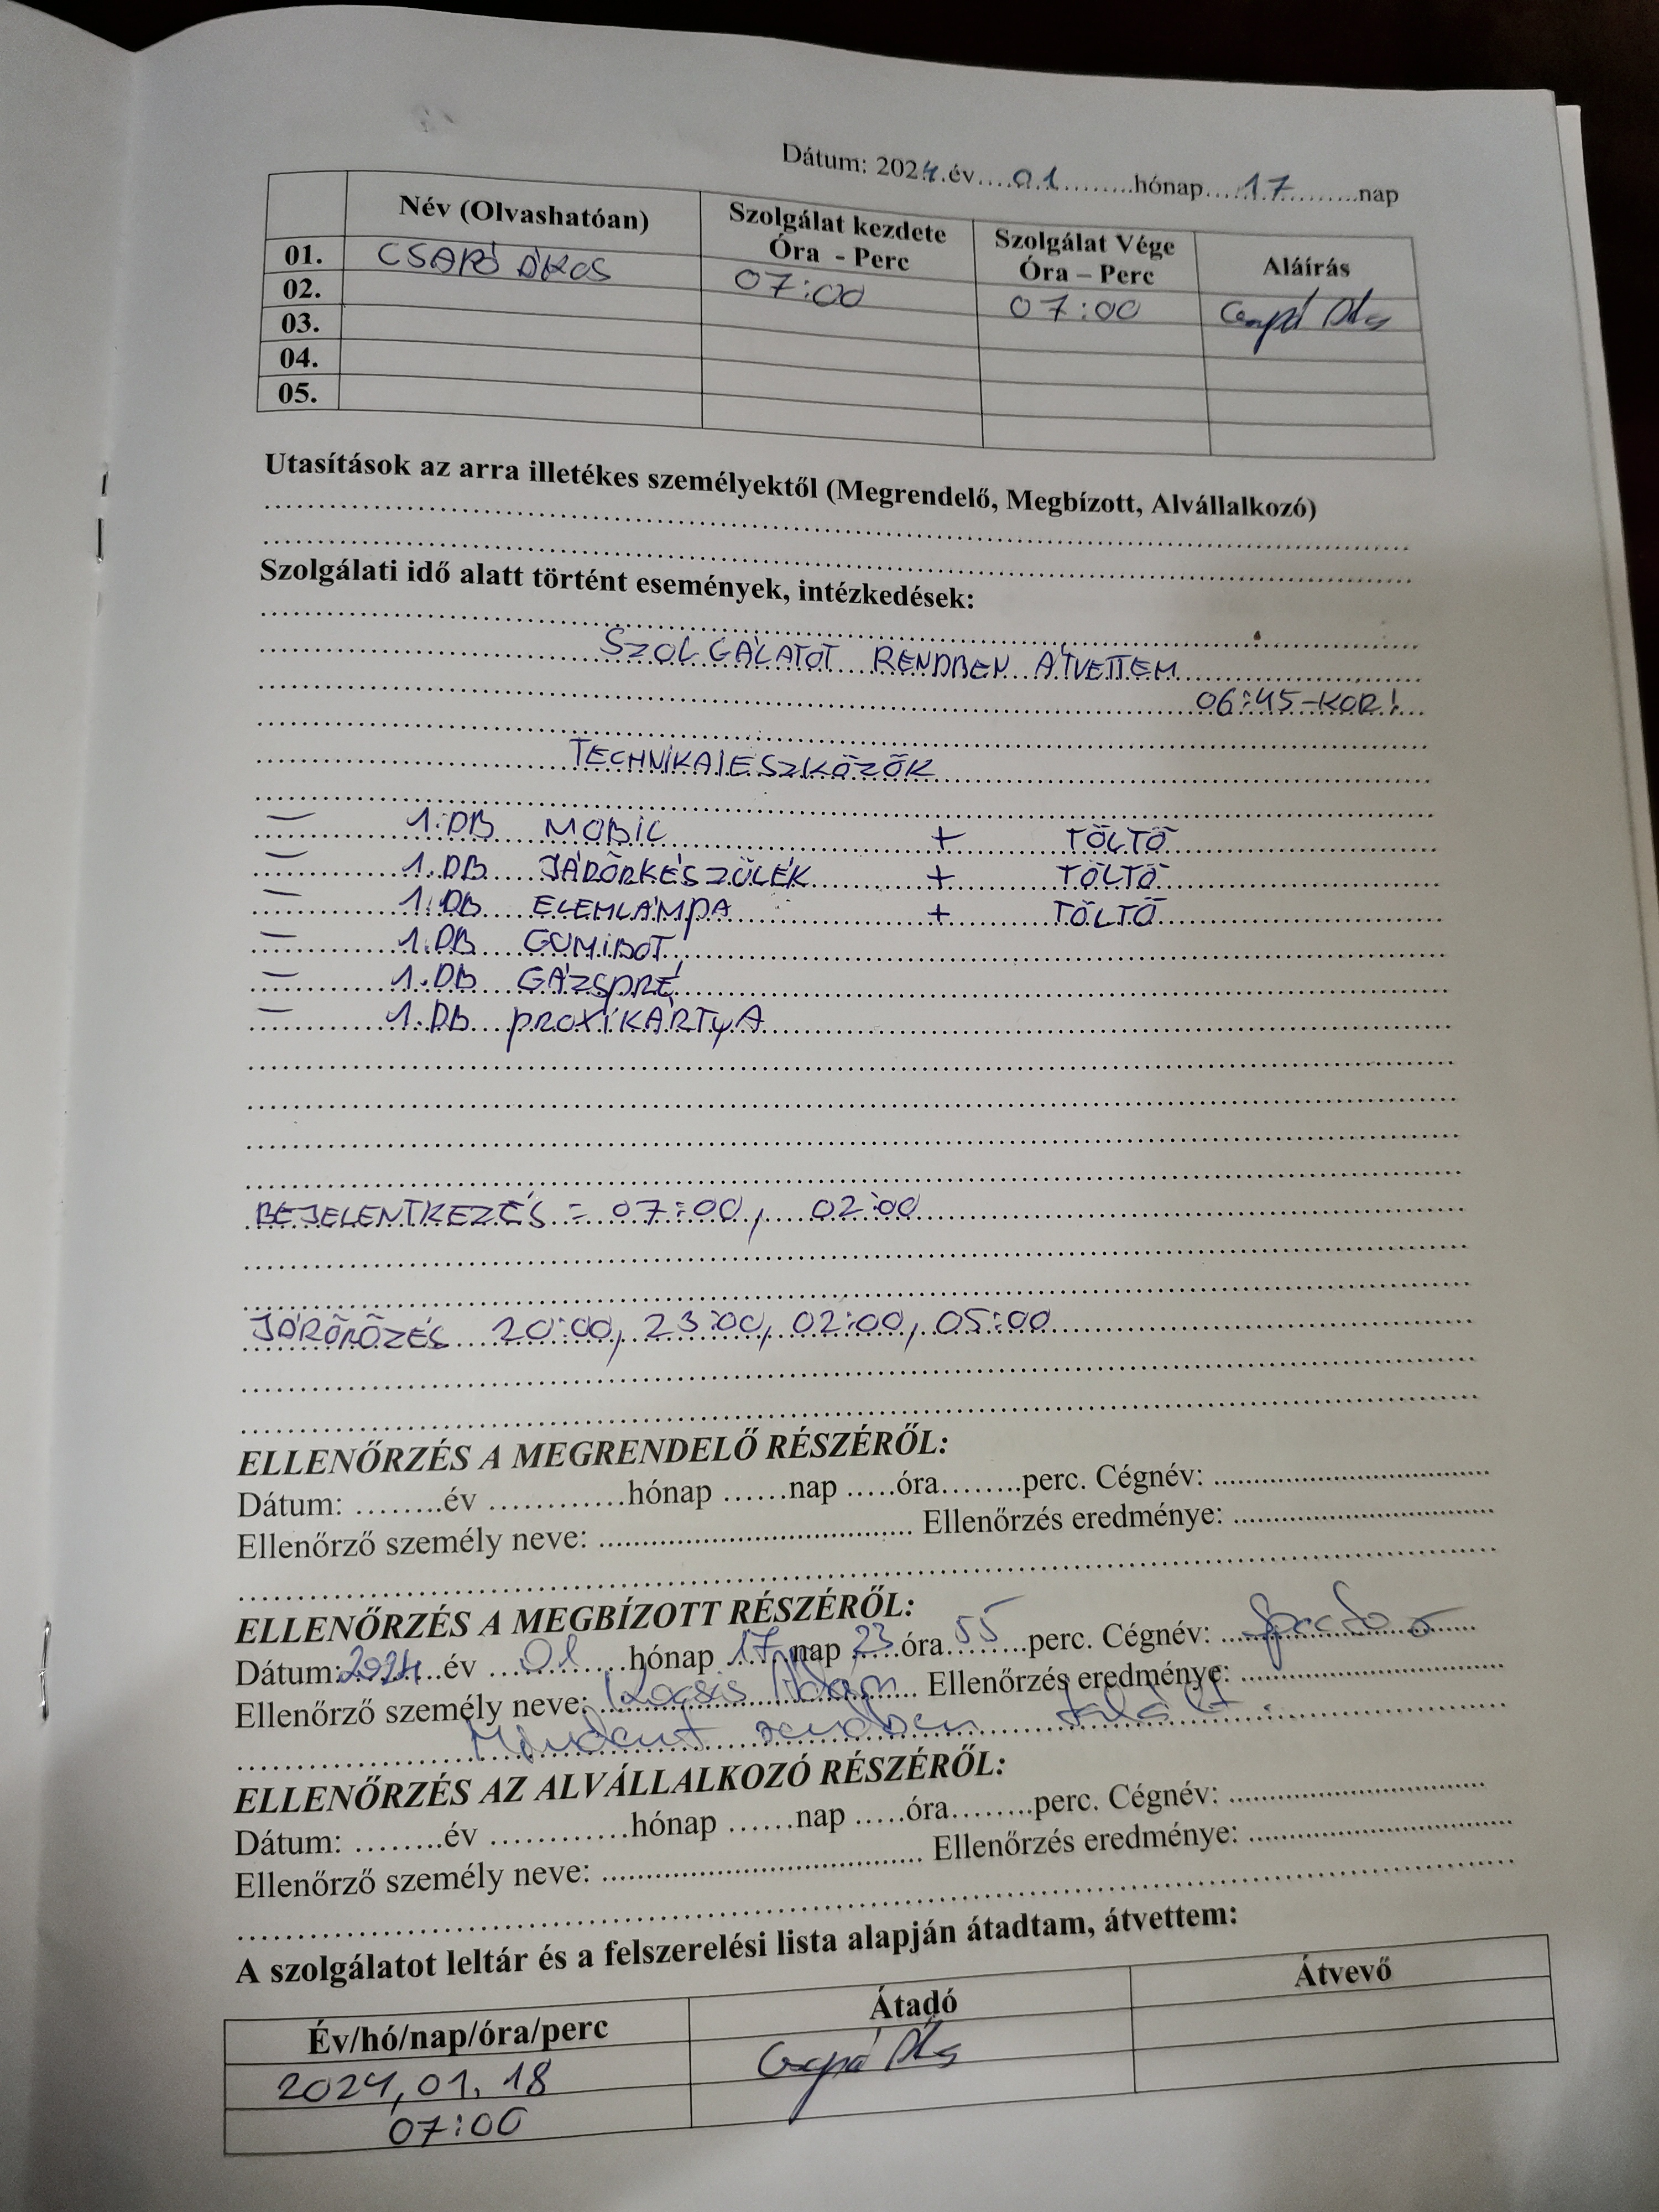 Dátum: 2024.év....01.........hónap....17.........nap
Név (Olvashatóan) Szolgálat kezdete Óra - Perc Szolgálat Vége Óra – Perc Aláírás
01. CSAPÓ ÁKOS 07:00 07:00 Csapó Ákos
02.
03.
04.
05.
Utasítások az arra illetékes személyektől (Megrendelő, Megbízott, Alvállalkozó)
Szolgálati idő alatt történt események, intézkedések:
SZOLGÁLATOT RENDBEN ÁTVETTEM
06:45-KOR!
TECHNIKAI ESZKÖZÖK
– 1.DB MOBIL + TÖLTŐ
– 1.DB JÁRŐRKÉSZÜLÉK + TÖLTŐ
– 1.DB ELEMLÁMPA + TÖLTŐ
– 1.DB GUMIBOT
– 1.DB GÁZSPRÉ
– 1.DB PROXIKÁRTYA
BEJELENTKEZÉS = 07:00, 02:00
JÁRŐRÖZÉS 20:00, 23:00, 02:00, 05:00
ELLENŐRZÉS A MEGRENDELŐ RÉSZÉRŐL:
Dátum: ........év ............hónap ......nap .....óra........perc. Cégnév: ..................................
Ellenőrző személy neve: ........................................ Ellenőrzés eredménye: ................................
ELLENŐRZÉS A MEGBÍZOTT RÉSZÉRŐL:
Dátum: 2024 év 01 hónap 17 nap 23 óra 55 perc. Cégnév:
Ellenőrző személy neve: Kocsis Ádám Ellenőrzés eredménye:
Mindent rendben talált.
ELLENŐRZÉS AZ ALVÁLLALKOZÓ RÉSZÉRŐL:
Dátum: ........év ............hónap ......nap .....óra........perc. Cégnév: ..................................
Ellenőrző személy neve: ........................................ Ellenőrzés eredménye: ................................
A szolgálatot leltár és a felszerelési lista alapján átadtam, átvettem:
Év/hó/nap/óra/perc Átadó Átvevő
2024,01.18 Csapó Ákos
07:00